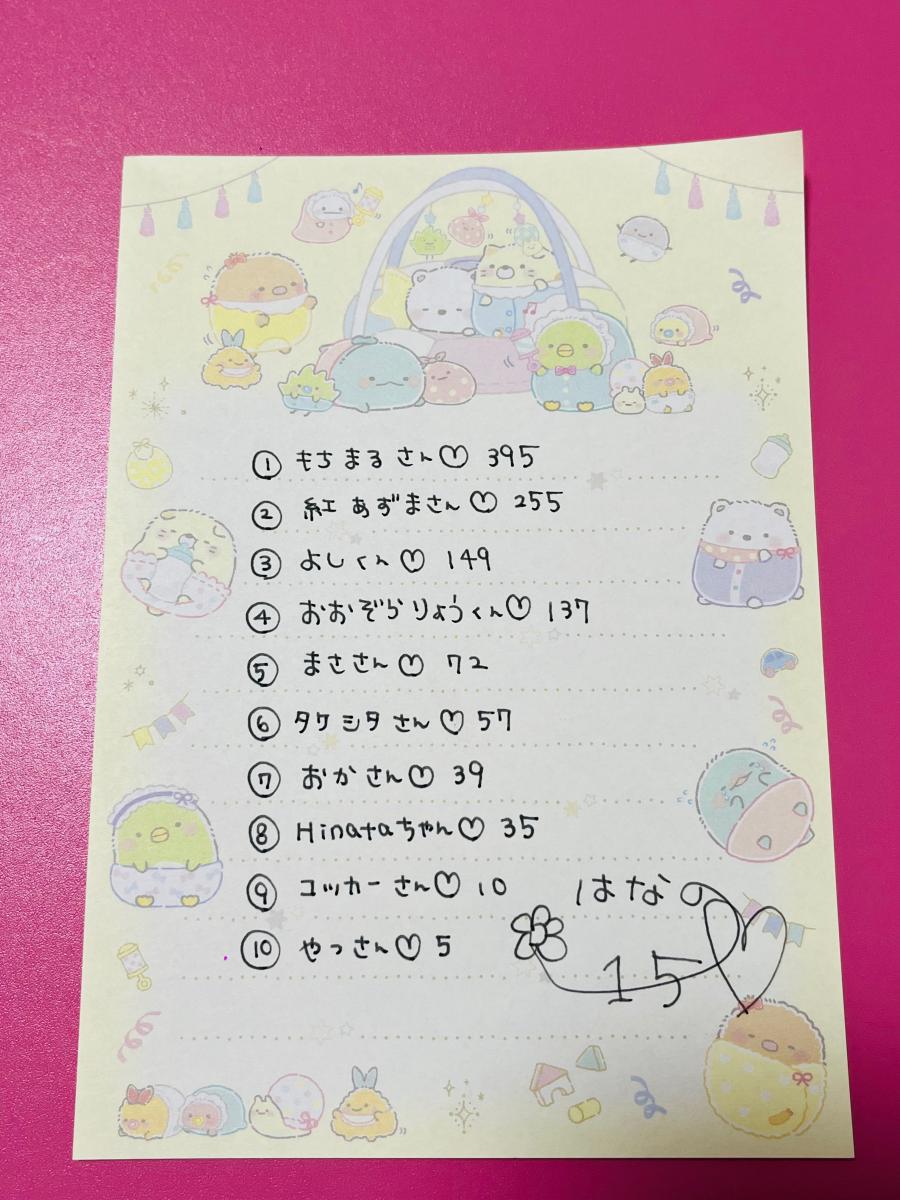 ① もちまるさん♡ 395
② 紅あずまさん♡ 255
③ よしくん♡ 149
④ おおぞらりょうくん♡ 137
⑤ まささん♡ 72
⑥ タケシタさん♡ 57
⑦ おかさん♡ 39
⑧ Hinataちゃん♡ 35
⑨ コッカーさん♡ 10
⑩ やっさん♡ 5
はなの
15